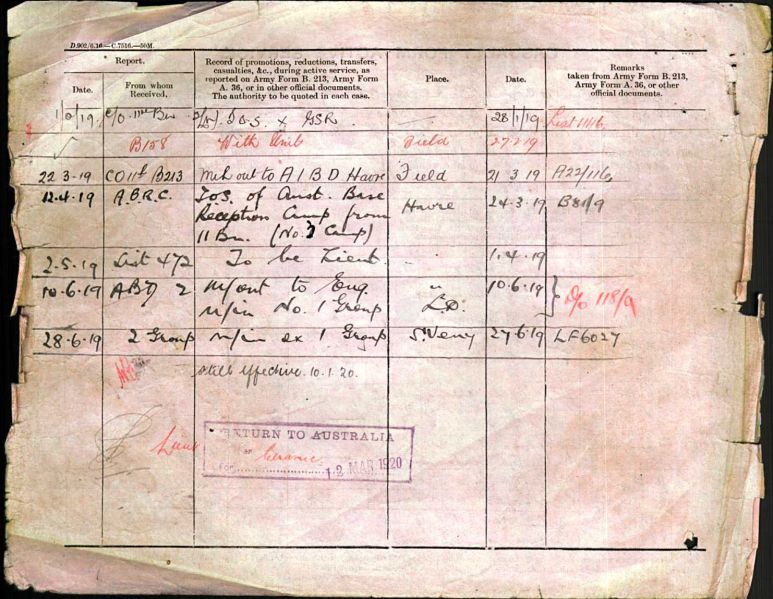 D.902/6.16.—C.7516.—50M.
Report.
Date.
From whom Received.
Record of promotions, reductions, transfers,
casualties, &c., during active service, as
reported on Army Form B. 213, Army Form
A. 36, or in other official documents.
The authority to be quoted in each case.
Place.
Date.
Remarks
taken from Army Form B. 213,
Army Form A. 36, or other
official documents.
C/O. 11th Bn T.O.S. 28/1/19
B158 With Unit Field 27.2.19
22.3.19 CO 11th B213 out to A I B D Havre Field 21 3 19 A22/116
12.4.19 A.B.R.C. T.O.S. of Aust. Base Havre 24.3.19
Reception Camp from
11 Bn. (No. Camp)
2.5.19 List 472 To be Lieut. 1.4.19
10.6.19 M/out to Eng. " 10.6.19 D/o 118/9
m/in No. 1 Group
28.6.19 2 Group m/in ex 1 Group 27.6.19 LF6027
still effective. 10.1.20.
Lieut
RETURN TO AUSTRALIA
Ceramic
12 MAR 1920